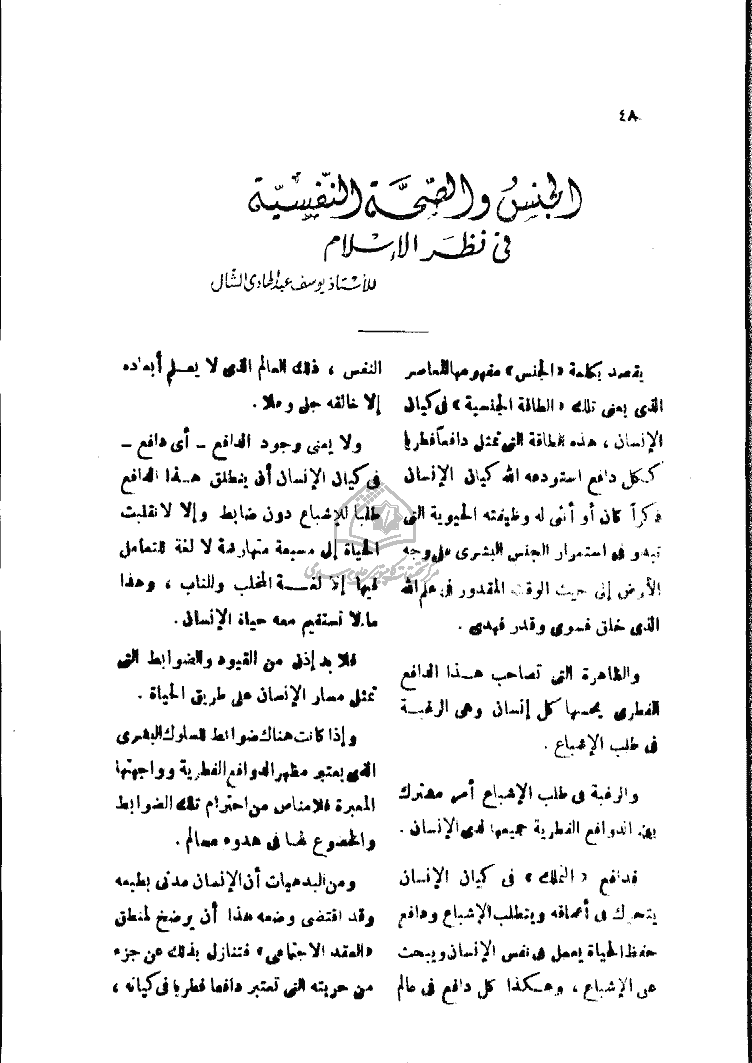 ٤٨
الجنس والصحّة النفسيّة
فى نظر الإسلام
للأستاذ يوسف عبد الهادى الشال
يقصد بكلمة «الجنس» مفهومها المعاصر
الذى يعنى تلك «الطاقة الجنسية» فى كيان
الإنسان ، هذه الطاقة التى تمثل دافعاً فطريا
ككل دافع استودعه الله كيان الإنسان
ذكراً كان أو أنثى له وظيفته الحيوية التى
تبدو فى استمرار الجنس البشرى على وجه
الأرض إلى حيث الوقت المقدور فى علم الله
الذى خلق فسوى وقدر فهدى .
والظاهرة التى تصاحب هذا الدافع
الفطرى يحسها كل إنسان وهى الرغبة
فى طلب الإشباع .
والرغبة فى طلب الإشباع أمر مشترك
بين الدوافع الفطرية جميعها لدى الإنسان .
فدافع «التملك» فى كيان الإنسان
يتحرك فى أعماقه ويتطلب الإشباع ودافع
حفظ الحياة يعمل فى نفس الإنسان ويبحث
عن الإشباع ، وهكذا كل دافع فى عالم
النفس ، ذلك العالم الذى لا يعلم أبعاده
إلا خالقه جل وعلا .
ولا يعنى وجود الدافع - أى دافع -
فى كيان الإنسان أن ينطلق هذا الدافع
طلبا للإشباع دون ضابط وإلا لانقلبت
الحياة إلى مسبعة متهارشة لا لغة للتعامل
فيها إلا لغة المخلب والناب ، وهذا
ما لا تستقيم معه حياة الإنسان .
فلا بد إذن من القيود والضوابط التى
تمثل مسار الإنسان على طريق الحياة .
وإذا كانت هناك ضوابط للسلوك البشرى
الذى يعتبر مظهر الدوافع الفطرية وواجهتها
المعبرة فلا مناص من احترام تلك الضوابط
والخضوع لها فى هدوء مسالم .
ومن البدهيات أن الإنسان مدنى بطبعه
وقد اقتضى وضعه هذا أن يرضخ لمنطق
«العقد الاجتماعى» فتنازل بذلك عن جزء
من حريته التى تعتبر دافعا فطريا فى كيانه ،